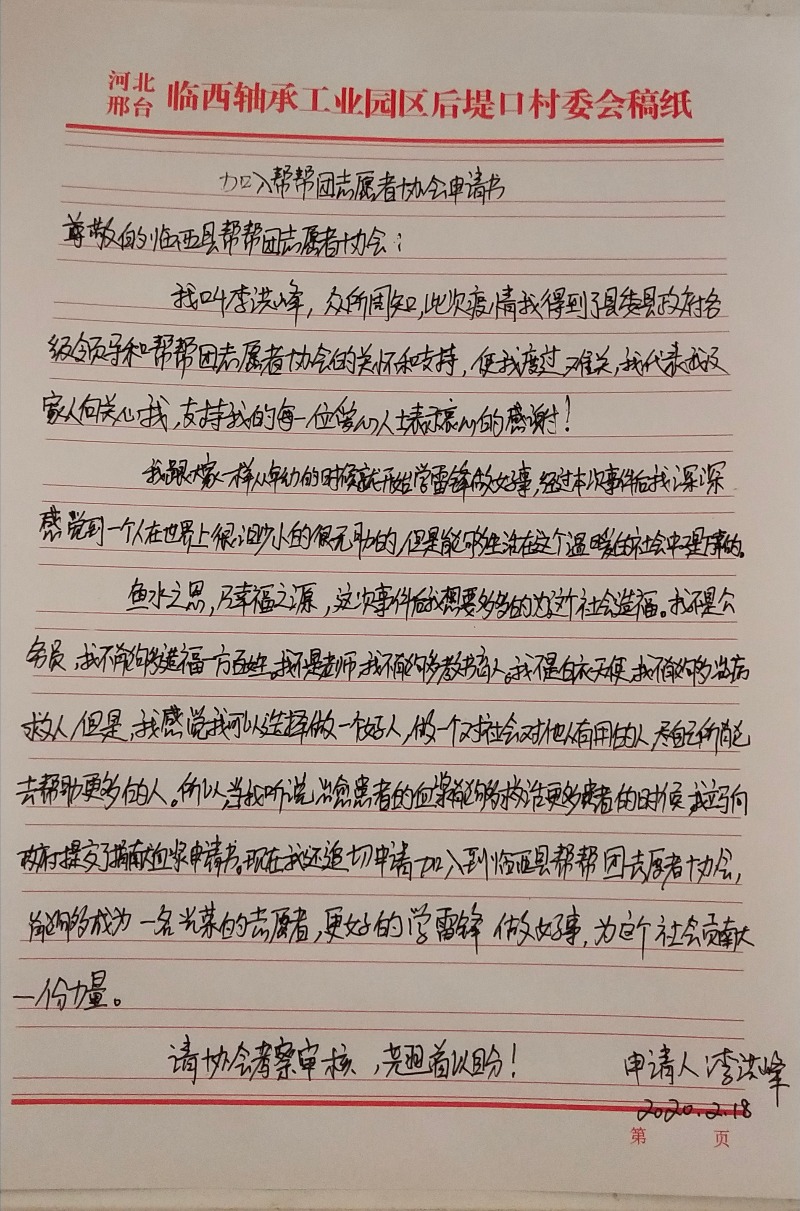 河北
邢台 临西轴承工业园区后堤口村委会稿纸
加入帮帮团志愿者协会申请书
尊敬的临西县帮帮团志愿者协会：
我叫李洪峰，众所周知，此次疫情我得到了县委县政府各
级领导和帮帮团志愿者协会的关怀和支持，使我度过难关，我代表我及
家人向关心我，支持我的每一位爱心人士表示衷心的感谢！
我跟大家一样从年幼的时候就开始学雷锋做好事，经过本次事件后我深深
感觉到一个人在世界上很渺小的很无助的，但是能够生活在这个温暖的社会中是万幸的。
鱼水之恩，乃幸福之源，这次事件后我想要多多的为这个社会造福。我不是公
务员，我不能够造福一方百姓。我不是老师，我不能够教书育人。我不是白衣天使，我不能够治病
救人，但是，我感觉我可以选择做一个好人，做一个对社会对他人有用的人，尽自己所能
去帮助更多的人。所以，当我听说治愈患者的血浆能够救治更多患者的时候，我立马向
政府提交了捐献血浆申请书。现在我还迫切申请加入到临西县帮帮团志愿者协会，
能够成为一名光荣的志愿者，更好的学雷锋做好事，为这个社会贡献
一份力量。
请协会考察审核，翘首以盼！
申请人：李洪峰
2020.2.18
第 页